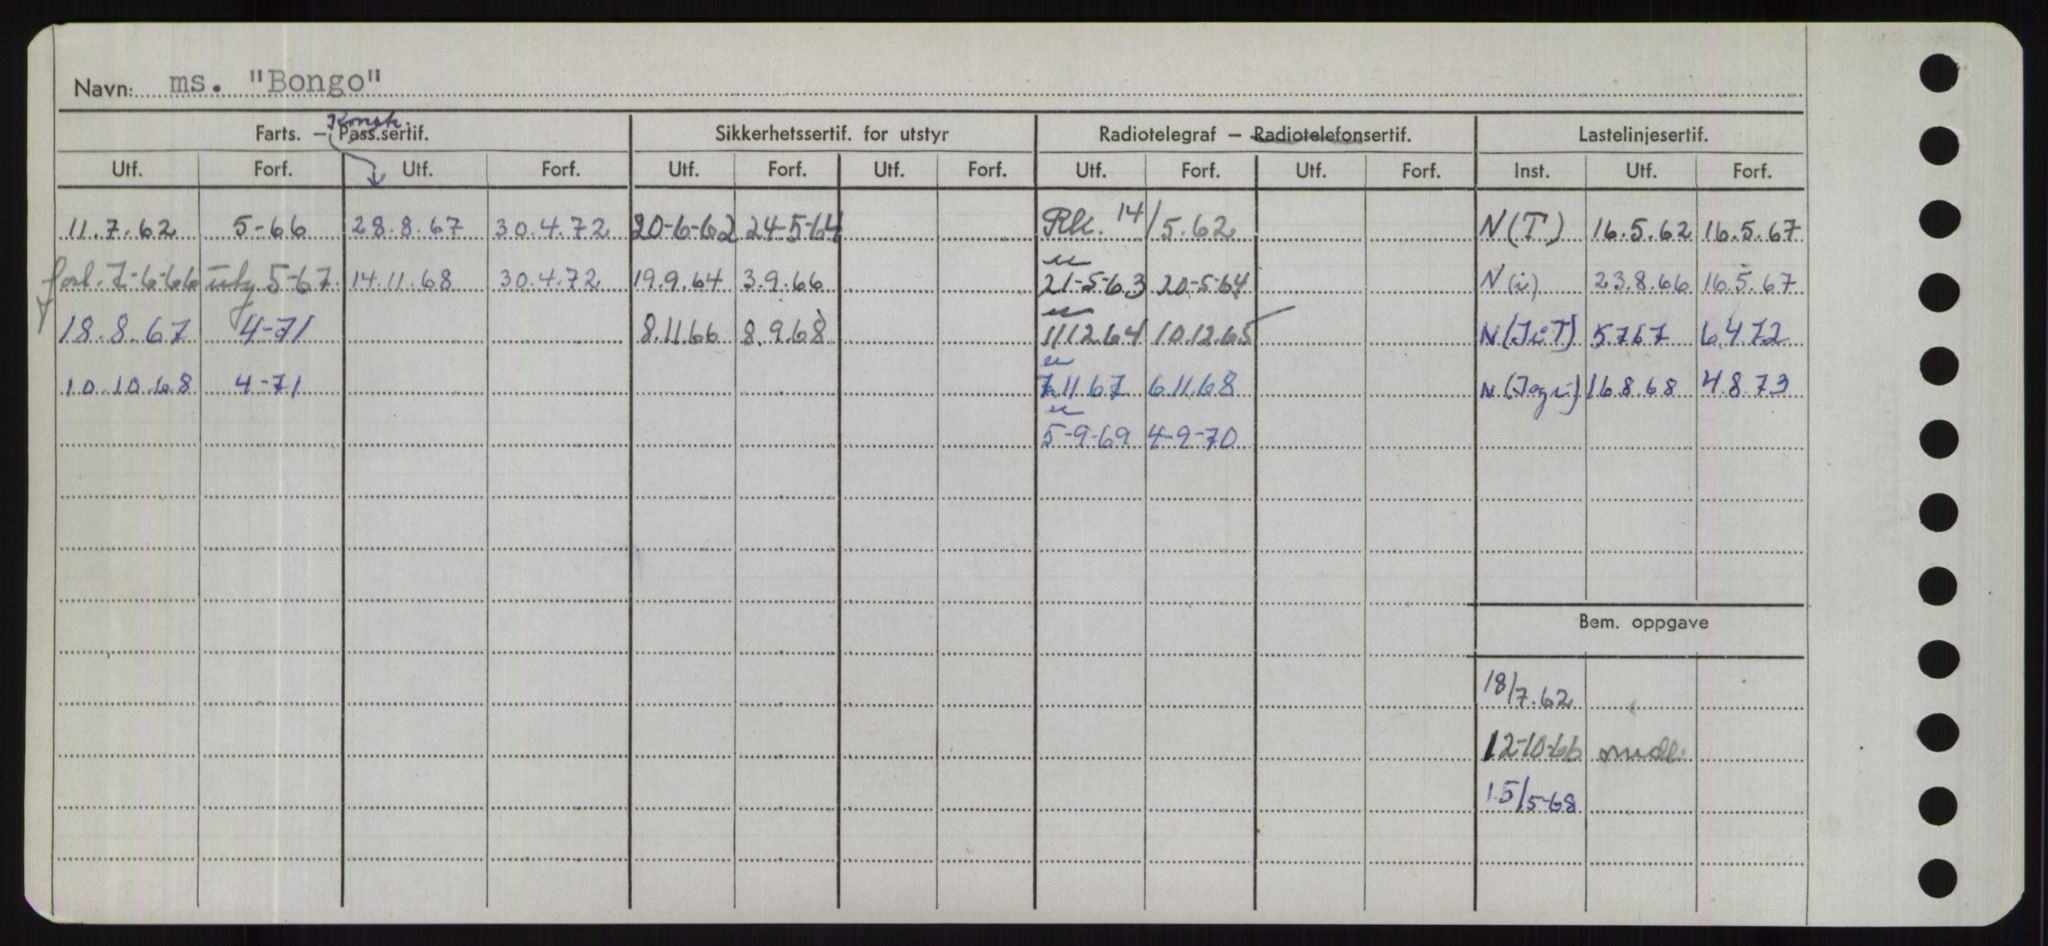 Navn: ms. "Bongo"
Konstr.
Farts. – Pass.sertif. Sikkerhetssertif. for utstyr Radiotelegraf – Radiotelefonsertif. Lastelinjesertif.
Utf. Forf. Utf. Forf. Utf. Forf. Utf. Forf. Utf. Forf. Utf. Forf. Inst. Utf. Forf.
11.7.62 5-66 28.8.67 30.4.72 20-6-62 24-5-64 14/5.62 N(T) 16.5.62 16.5.67
forl. 7-6-66 5-67 14.11.68 30.4.72 19.9.64 3.9.66 21-5-63 20-5-64 N(i) 23.8.66 16.5.67
18.8.67 4-71 8.11.66 8.9.68 11.12.64 10.12.65 N(IiT) 5.7.67 6.4.72
10.10.68 4-71 7.11.67 6.11.68 N(Iogi) 16.8.68 4.8.73
5-9-69 4-9-70
Bem. oppgave
18/7.62
12-10-66
15/5-68